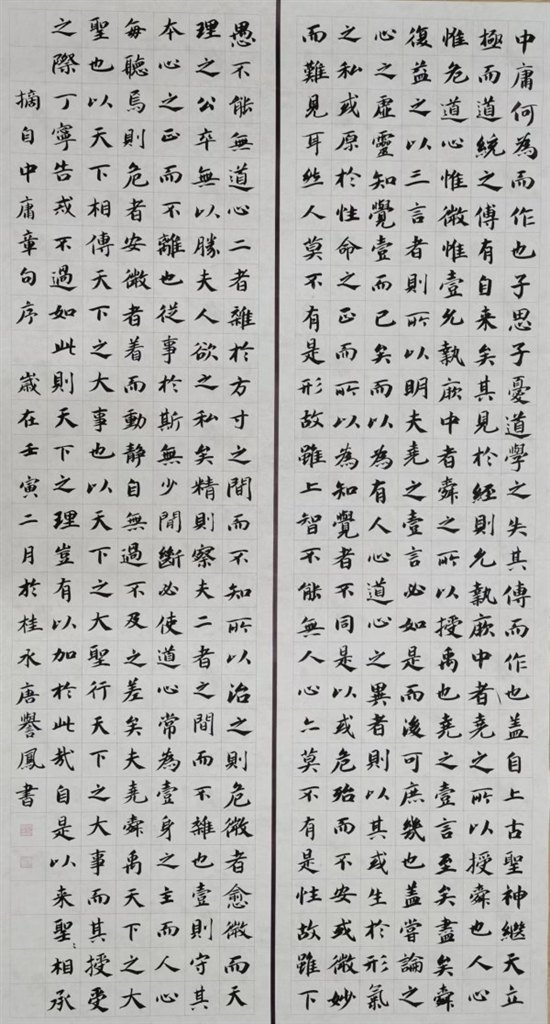 中庸何為而作也子思子憂道學之失其傳而作也盖自上古聖神繼天立
極而道統之傳有自来矣其見於經則允執厥中者堯之所以授舜也人心
惟危道心惟微惟壹允執厥中者舜之所以授禹也堯之壹言至矣盡矣舜
復益之以三言者則所以明夫堯之壹言必如是而後可庶幾也盖嘗論之
心之虛靈知覺壹而已矣而以為有人心道心之異者則以其或生於形氣
之私或原於性命之正而所以為知覺者不同是以或危殆而不安或微妙
而難見耳然人莫不有是形故雖上智不能無人心亦莫不有是性故雖下
愚不能無道心二者雜於方寸之間而不知所以治之則危微者愈微而天
理之公卒無以勝夫人欲之私矣精則察夫二者之間而不雜也壹則守其
本心之正而不離也從事於斯無少間斷必使道心常為壹身之主而人心
每聽焉則危者安微者着而動靜自無過不及之差矣夫堯舜禹天下之大
聖也以天下相傳天下之大事也以天下之大聖行天下之大事而其授受
之際丁寧告戒不過如此則天下之理豈有以加於此哉自是以来聖〻相承
摘自中庸章句序 歲在壬寅二月於桂水唐譽鳳書